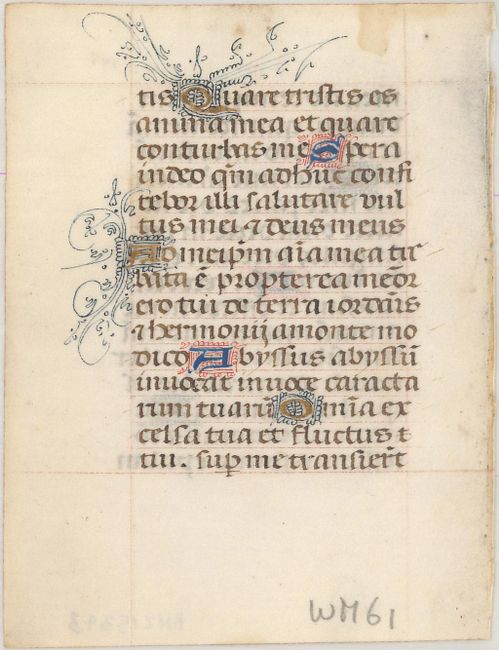 tis Quare tristis es
anima mea et quare
conturbas me Spera
in deo qm̄ adhuc confi
tebor illi salutare vul
tus mei ⁊ deus meus
Ad me ip̄m aīa mea tur
bata ē propterea meōr
ero tui de terra iordāis
⁊ hermonij a monte mo
dico Abyssus abyssū
invocat in voce caracta
rum tuarū Omīa ex
celsa tua et fluctus t
tui . sup me transierūt
WM61